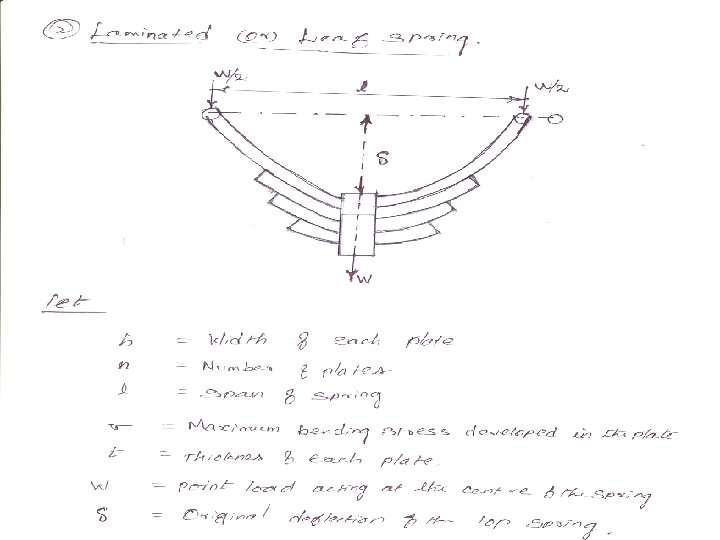 (2) Laminated (or) Leaf spring.
W/2 l W/2
δ
W
Let
b = Width of each plate
n = Number of plates
l = span of spring
σ = Maximum bending stress developed in the plate
t = Thickness of each plate.
W = point load acting at the centre of the spring
δ = Original deflection of the top spring.